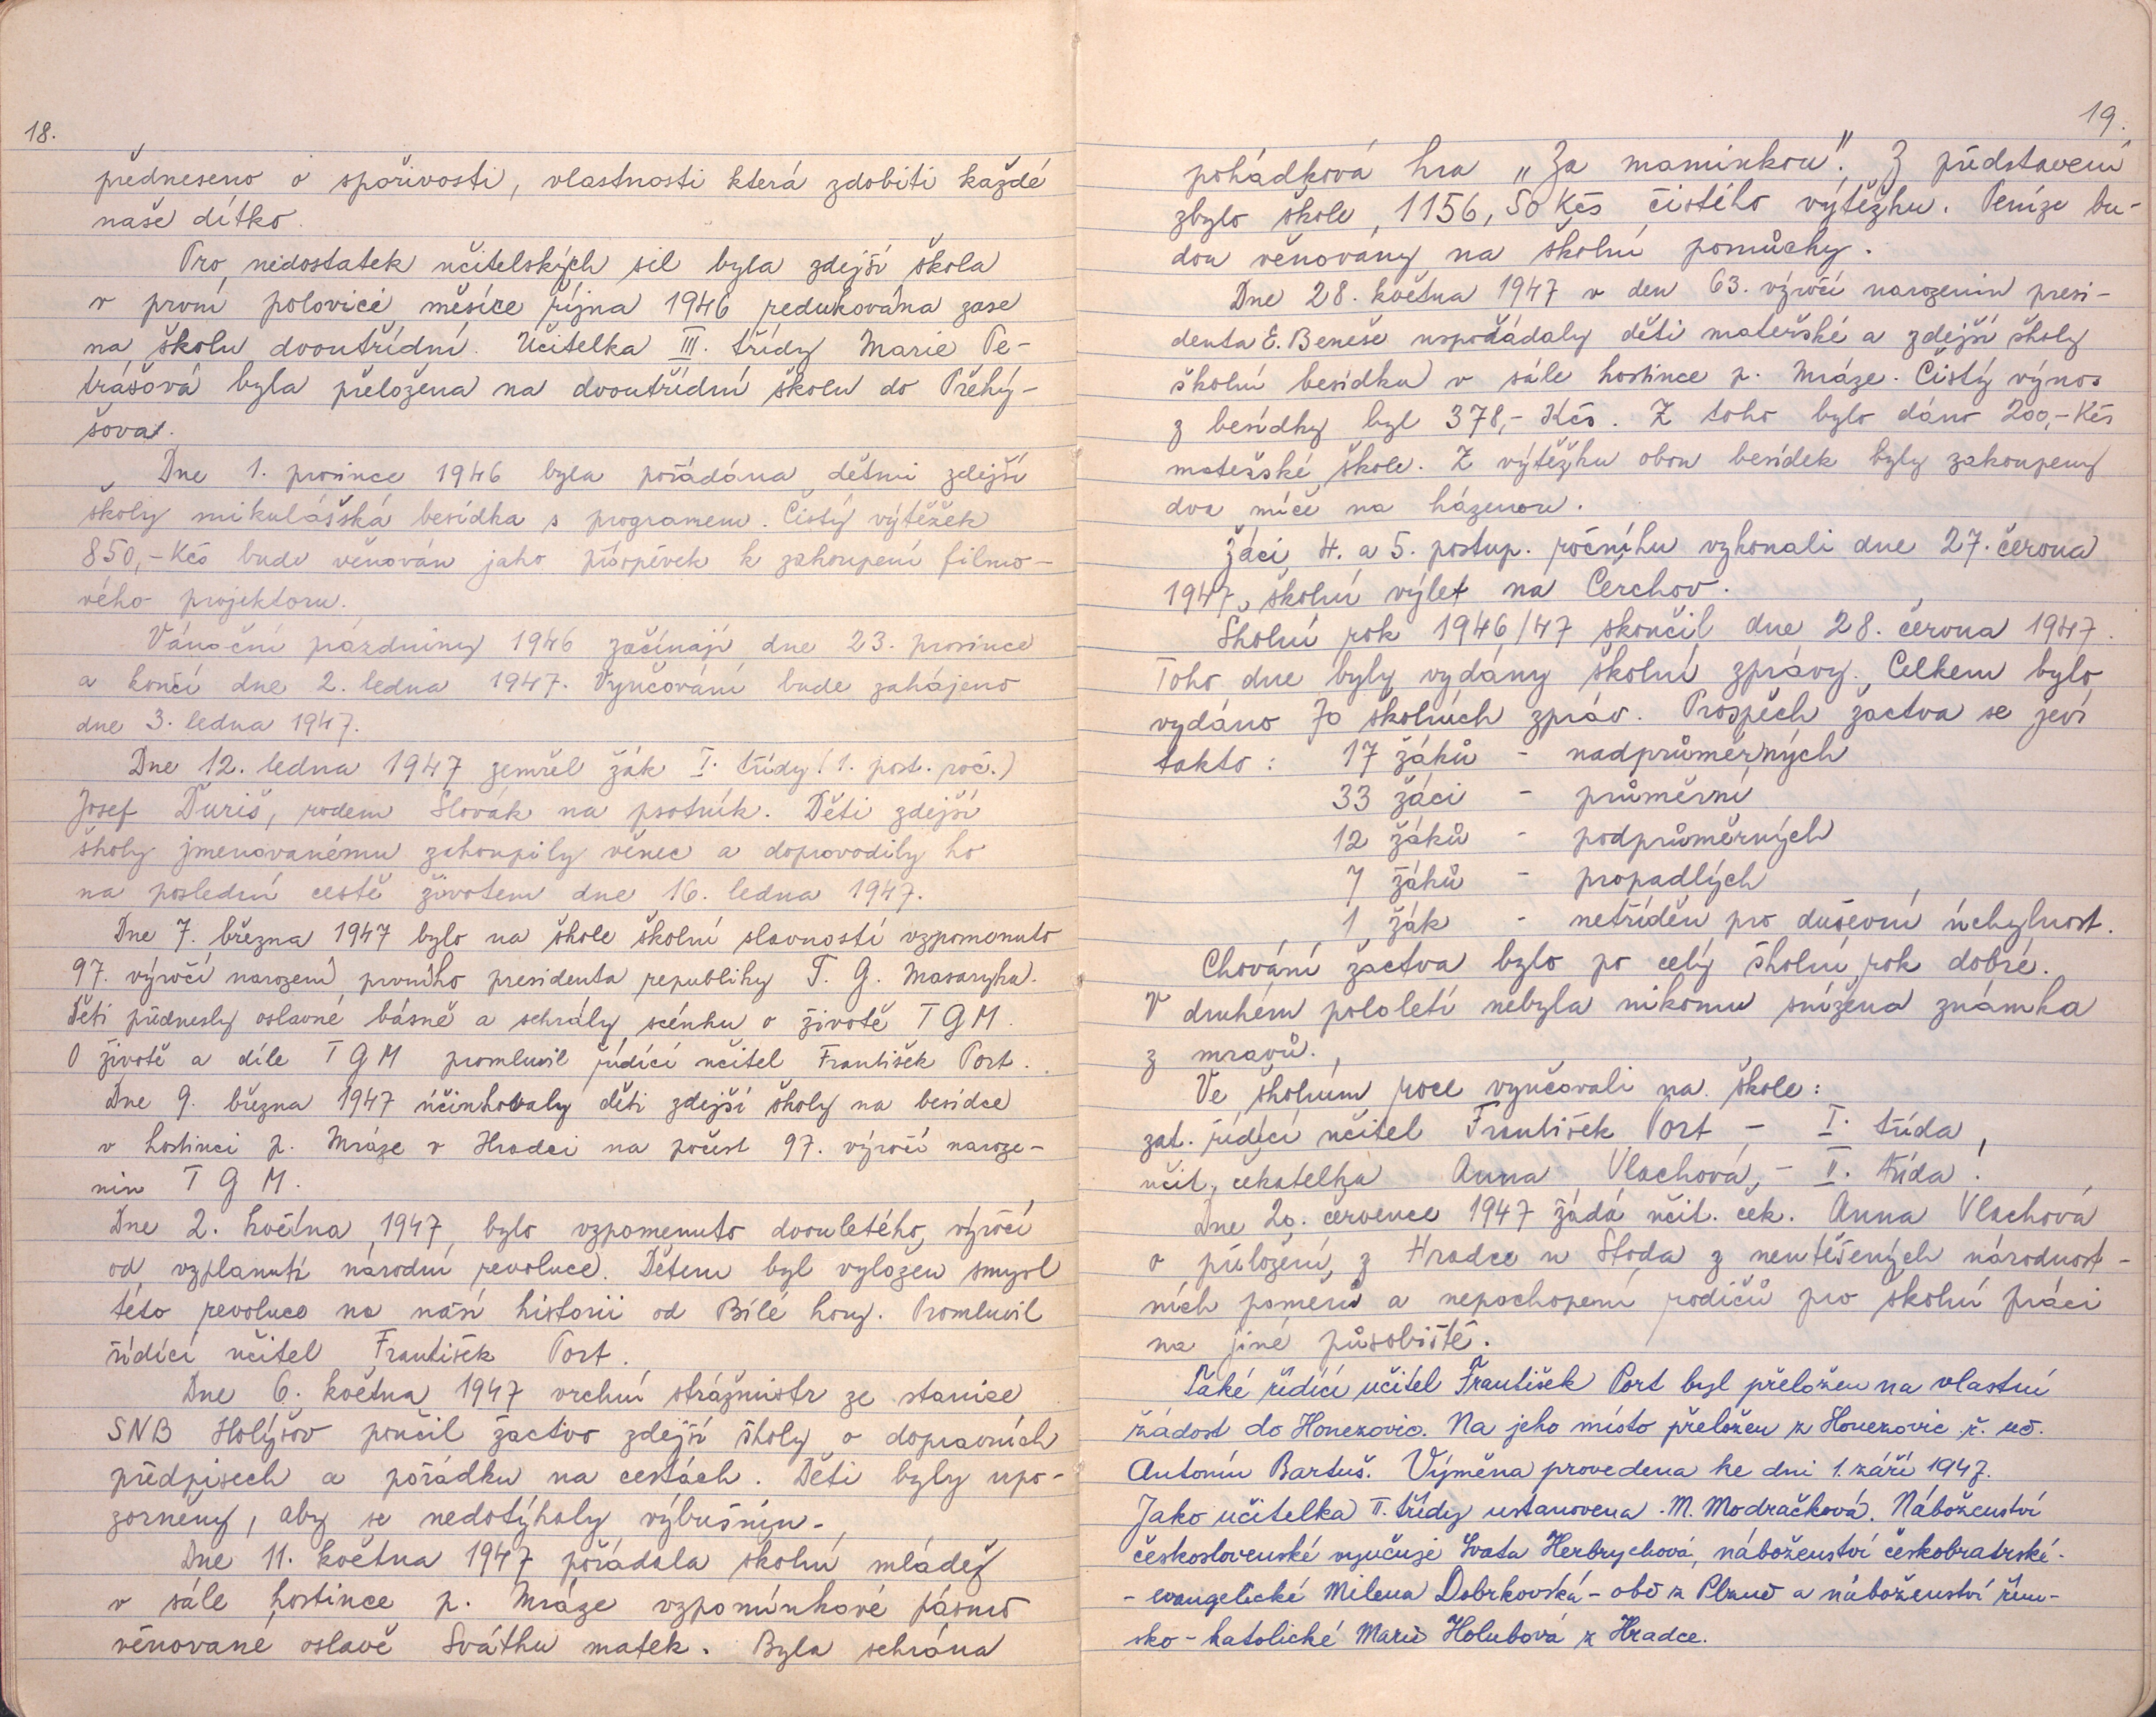 18.
předneseno o spořivosti, vlastnosti která zdobiti každé
naše dítko.
Pro nedostatek učitelských sil byla zdejší škola
v první polovici měsíce října 1946 redukována zase
na školu dvoutřídní. Učitelka III. třídy Marie Pe-
trášová byla přeložena na dvoutřídní školu do Přehý-
šova.
Dne 1. prosince 1946 byla pořádána dětmi zdejší
školy mikulášská besídka s programem. Čistý výtěžek
850,- Kčs bude věnován jako příspěvek k zakoupení filmo-
vého projektoru.
Vánoční prázdniny 1946 začínají dne 23. prosince
a končí dne 2. ledna 1947. Vyučování bude zahájeno
dne 3. ledna 1947.
Dne 12. ledna 1947 zemřel žák I. třídy (1. post. roč.)
Josef Ďuriš, rodem Slovák na psotník. Děti zdejší
školy jmenovanému zakoupily věnec a doprovodily ho
na poslední cestě životem dne 16. ledna 1947.
Dne 7. března 1947 bylo na škole školní slavností vzpomenuto
97. výročí narození prvního presidenta republiky T. G. Masaryka.
Děti přednesly oslavné básně a sehrály scénku o životě T G M.
O životě a díle T G M promluvil řídící učitel František Port.
Dne 9. března 1947 účinkovaly děti zdejší školy na besídce
v hostinci p. Mráze v Hradci na počest 97. výročí naroze-
nin T G M.
Dne 2. května 1947 bylo vzpomenuto dvouletého výročí
od vzplanutí národní revoluce. Dětem byl vyložen smysl
této revoluce na naší historii od Bílé hory. Promluvil
řídící učitel František Port.
Dne 6. května 1947 vrchní strážmistr ze stanice
SNB Holýšov poučil žactvo zdejší školy o dopravních
předpisech a pořádku na cestách. Děti byly upo-
zorněny, aby se nedotýkaly výbušnin.
Dne 11. května 1947 pořádala školní mládež
v sále hostince p. Mráze vzpomínkové pásmo
věnované oslavě Svátku matek. Byla sehrána
19.
pohádková hra „Za maminkou". Z představení
zbylo škole 1156,50 Kčs čistého výtěžku. Peníze bu-
dou věnovány na školní pomůcky.
Dne 28. května 1947 v den 63. výročí narozenin presi-
denta E. Beneše uspořádaly děti mateřské a zdejší školy
školní besídku v sále hostince p. Mráze. Čistý výnos
z besídky byl 378,- Kčs. Z toho bylo dáno 200,- Kčs
mateřské škole. Z výtěžku obou besídek byly zakoupeny
dva míče na házenou.
Žáci 4. a 5. postup. ročníku vykonali dne 27. června
1947 školní výlet na Čerchov.
Školní rok 1946/47 skončil dne 28. června 1947.
Toho dne byly vydány školní zprávy. Celkem bylo
vydáno 70 školních zpráv. Prospěch žactva se jeví
takto: 17 žáků - nadprůměrných
33 žáci - průměrní
12 žáků - podprůměrných
7 žáků - propadlých
1 žák - netříděn pro duševní úchylnost.
Chování žactva bylo po celý školní rok dobré.
V druhém pololetí nebyla nikomu snížena známka
z mravů.
Ve školním roce vyučovali na škole:
zat. řídící učitel František Port - I. třída,
učit. čekatelka Anna Vlachová, - II. třída.
Dne 20. července 1947 žádá učit. ček. Anna Vlachová
o přeložení z Hradce u Stoda z neutěšených národnost-
ních poměrů a nepochopení rodičů pro školní práci
na jiné působiště.
Také řídící učitel František Port byl přeložen na vlastní
žádost do Honezovic. Na jeho místo přeložen z Honezovic ř. uč.
Antonín Bartuš. Výměna provedena ke dni 1. září 1947.
Jako učitelka II. třídy ustanovena M. Modračková. Náboženství
československé vyučuje Svata Herbrychová, náboženství českobratrské-
- evangelické Milena Dobrkovská - obě z Plzně a náboženství řím-
sko-katolické Marie Holubová z Hradce.